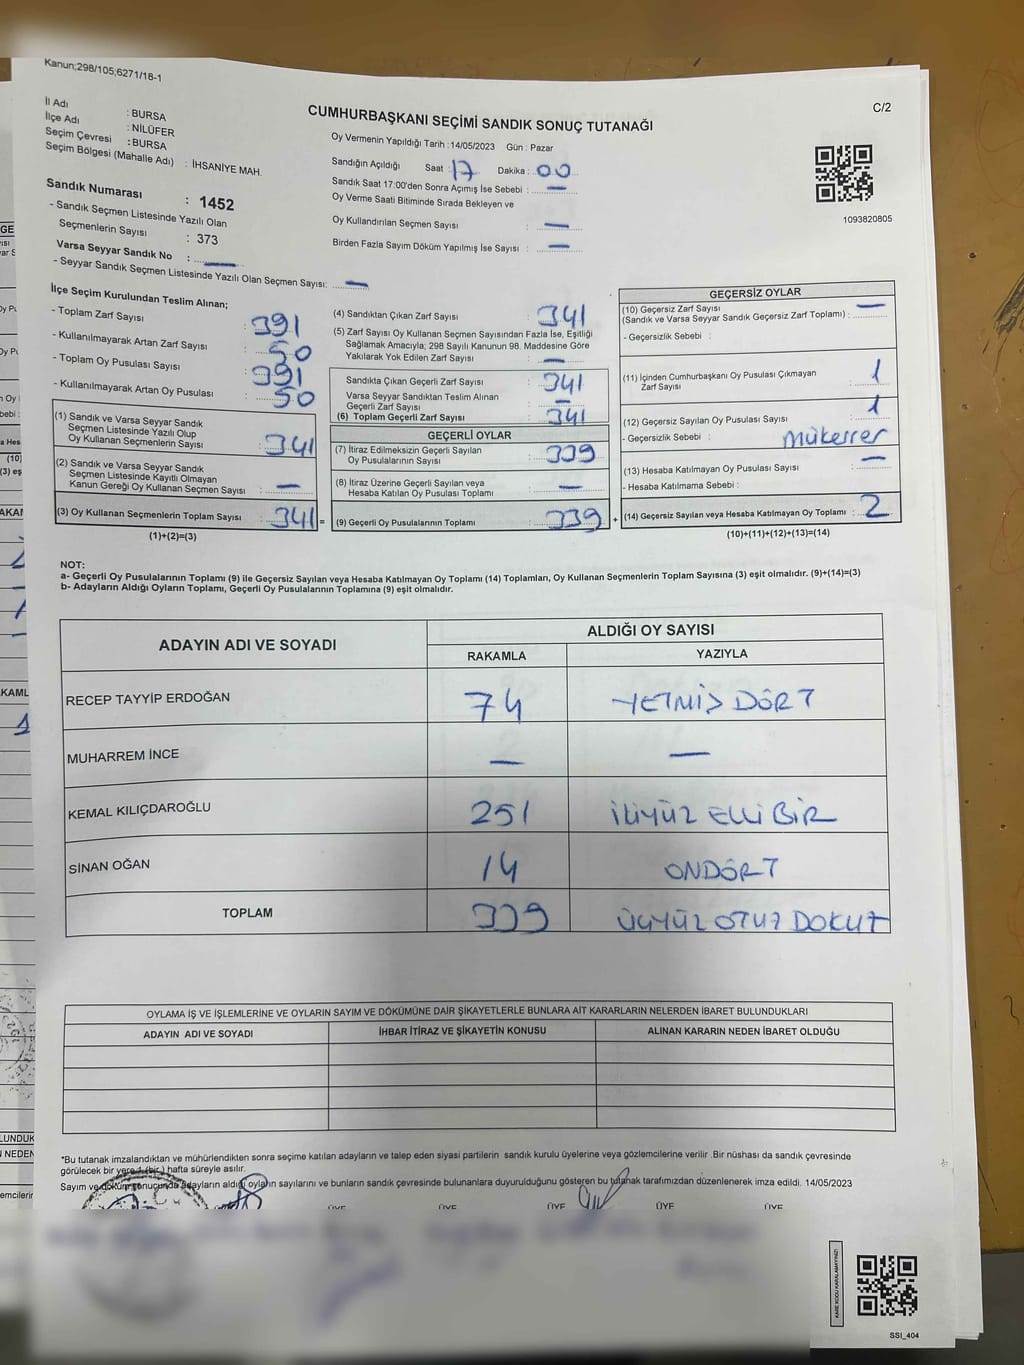 Kanun;298/105;6271/18-1
C/2
İl Adı : BURSA
İlçe Adı : NİLÜFER
Seçim Çevresi : BURSA
Seçim Bölgesi (Mahalle Adı) : İHSANİYE MAH.
CUMHURBAŞKANI SEÇİMİ SANDIK SONUÇ TUTANAĞI
Oy Vermenin Yapıldığı Tarih : 14/05/2023 Gün : Pazar
Sandığın Açıldığı Saat : 17 Dakika : 00
Sandık Saat 17:00'den Sonra Açımış İse Sebebi : —
Oy Verme Saati Bitiminde Sırada Bekleyen ve
Oy Kullandırılan Seçmen Sayısı : —
Birden Fazla Sayım Döküm Yapılmış İse Sayısı : —
1093820805
Sandık Numarası : 1452
- Sandık Seçmen Listesinde Yazılı Olan
Seçmenlerin Sayısı : 373
Varsa Seyyar Sandık No : —
- Seyyar Sandık Seçmen Listesinde Yazılı Olan Seçmen Sayısı: —
İlçe Seçim Kurulundan Teslim Alınan;
- Toplam Zarf Sayısı : 391
- Kullanılmayarak Artan Zarf Sayısı : 50
- Toplam Oy Pusulası Sayısı : 391
- Kullanılmayarak Artan Oy Pusulası : 50
(1) Sandık ve Varsa Seyyar Sandık
Seçmen Listesinde Yazılı Olup
Oy Kullanan Seçmenlerin Sayısı : 341
(2) Sandık ve Varsa Seyyar Sandık
Seçmen Listesinde Kayıtlı Olmayan
Kanun Gereği Oy Kullanan Seçmen Sayısı : —
(3) Oy Kullanan Seçmenlerin Toplam Sayısı : 341
(1)+(2)=(3)
(4) Sandıktan Çıkan Zarf Sayısı : 341
(5) Zarf Sayısı Oy Kullanan Seçmen Sayısından Fazla İse, Eşitliği
Sağlamak Amacıyla; 298 Sayılı Kanunun 98. Maddesine Göre
Yakılarak Yok Edilen Zarf Sayısı : —
Sandıkta Çıkan Geçerli Zarf Sayısı : 341
Varsa Seyyar Sandıktan Teslim Alınan
Geçerli Zarf Sayısı : —
(6) Toplam Geçerli Zarf Sayısı : 341
GEÇERLİ OYLAR
(7) İtiraz Edilmeksizin Geçerli Sayılan
Oy Pusulalarının Sayısı : 339
(8) İtiraz Üzerine Geçerli Sayılan veya
Hesaba Katılan Oy Pusulası Toplamı : —
= (9) Geçerli Oy Pusulalarının Toplamı : 339 +
GEÇERSİZ OYLAR
(10) Geçersiz Zarf Sayısı
(Sandık ve Varsa Seyyar Sandık Geçersiz Zarf Toplamı) : —
- Geçersizlik Sebebi :
(11) İçinden Cumhurbaşkanı Oy Pusulası Çıkmayan
Zarf Sayısı : 1
(12) Geçersiz Sayılan Oy Pusulası Sayısı : 1
- Geçersizlik Sebebi : mükerrer
(13) Hesaba Katılmayan Oy Pusulası Sayısı : —
- Hesaba Katılmama Sebebi :
(14) Geçersiz Sayılan veya Hesaba Katılmayan Oy Toplamı : 2
(10)+(11)+(12)+(13)=(14)
NOT:
a- Geçerli Oy Pusulalarının Toplamı (9) ile Geçersiz Sayılan veya Hesaba Katılmayan Oy Toplamı (14) Toplamları, Oy Kullanan Seçmenlerin Toplam Sayısına (3) eşit olmalıdır. (9)+(14)=(3)
b- Adayların Aldığı Oyların Toplamı, Geçerli Oy Pusulalarının Toplamına (9) eşit olmalıdır.
ADAYIN ADI VE SOYADI ALDIĞI OY SAYISI
RAKAMLA YAZIYLA
RECEP TAYYİP ERDOĞAN 74 YETMİŞ DÖRT
MUHARREM İNCE — —
KEMAL KILIÇDAROĞLU 251 İKİYÜZ ELLİ BİR
SİNAN OĞAN 14 ONDÖRT
TOPLAM 339 ÜÇYÜZ OTUZ DOKUZ
OYLAMA İŞ VE İŞLEMLERİNE VE OYLARIN SAYIM VE DÖKÜMÜNE DAİR ŞİKAYETLERLE BUNLARA AİT KARARLARIN NELERDEN İBARET BULUNDUKLARI
ADAYIN ADI VE SOYADI İHBAR İTİRAZ VE ŞİKAYETİN KONUSU ALINAN KARARIN NEDEN İBARET OLDUĞU
*Bu tutanak imzalandıktan ve mühürlendikten sonra seçime katılan adayların ve talep eden siyasi partilerin sandık kurulu üyelerine veya gözlemcilerine verilir .Bir nüshası da sandık çevresinde
görülecek bir yere 1 (bir ) hafta süreyle asılır.
Sayım ve döküm sonucunda adayların aldığı oyların sayılarını ve bunların sandık çevresinde bulunanlara duyurulduğunu gösteren bu tutanak tarafımızdan düzenlenerek imza edildi. 14/05/2023
ÜYE ÜYE ÜYE ÜYE ÜYE
KARE KODU KARALAMAYINIZ!
SSI_404